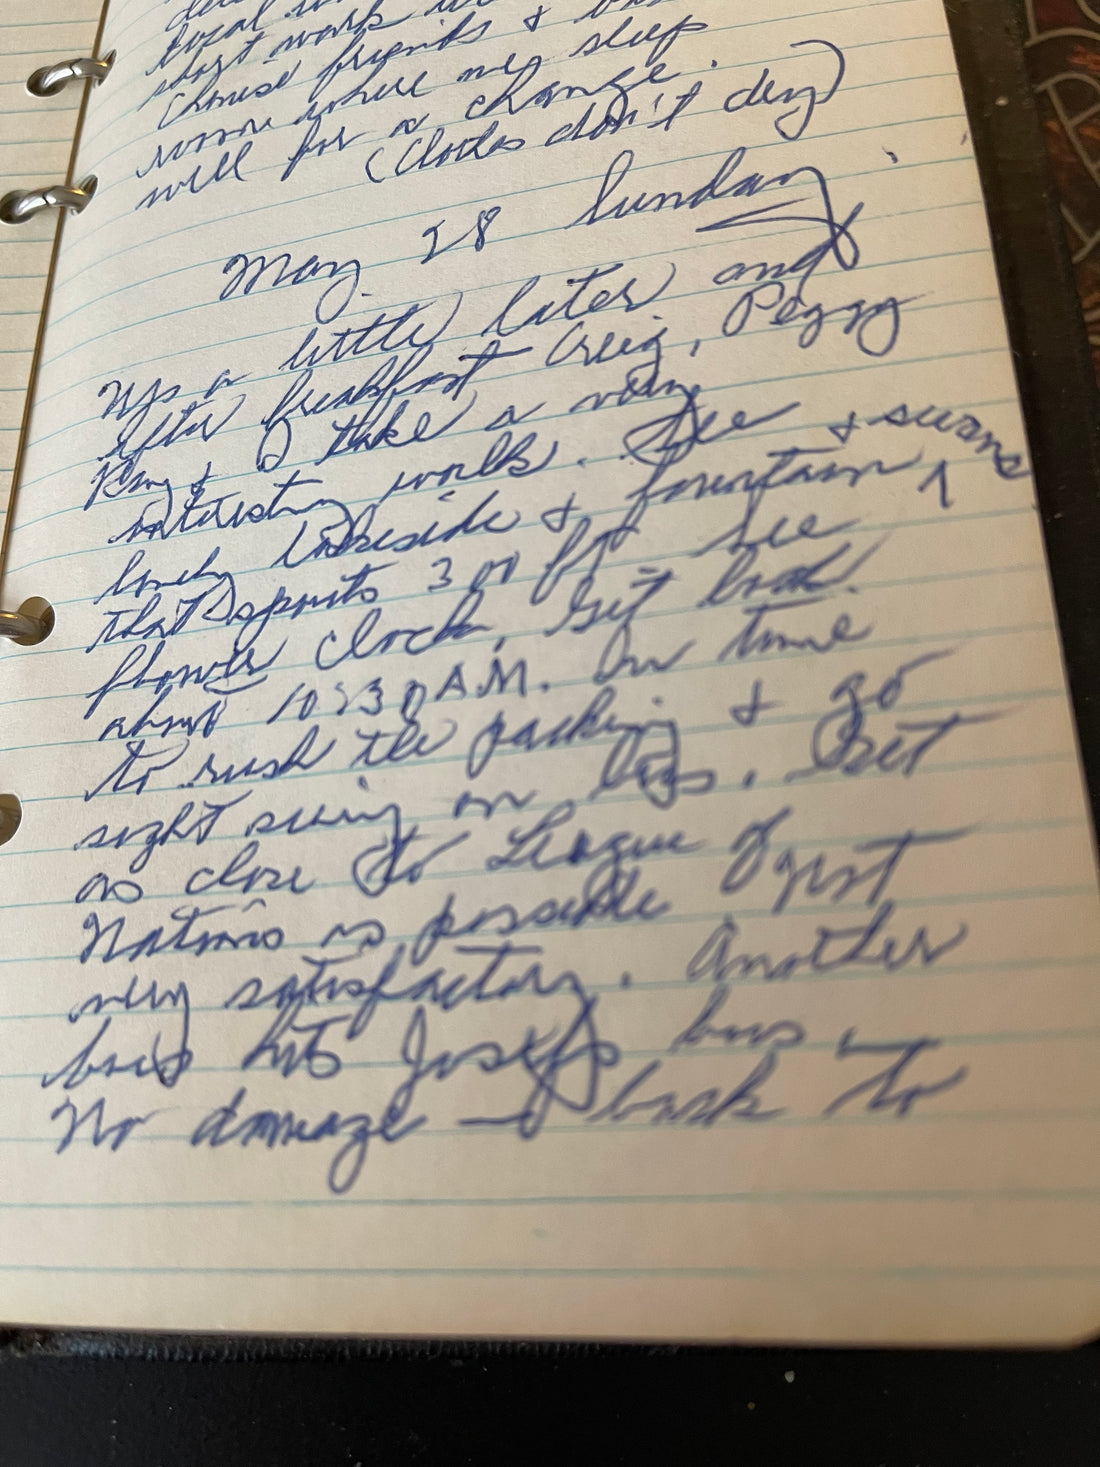 local
start work
Chinese friends &
room where we sleep
well for a change.
(Clothes don't dry)
May 28 Sunday
Up a little later and
after breakfast Greig, Peggy
Kay & I take a very
interesting walk. See
lovely lakeside & fountain & swans
that spouts 300 ft See
flower clock, Get back
about 10:30 AM. In time
to rush the packing & go
sight seeing on bus. Get
as close to League of
Nations as possible & just
very satisfactory. Another
bus hits Josef's bus —
No damage — back to